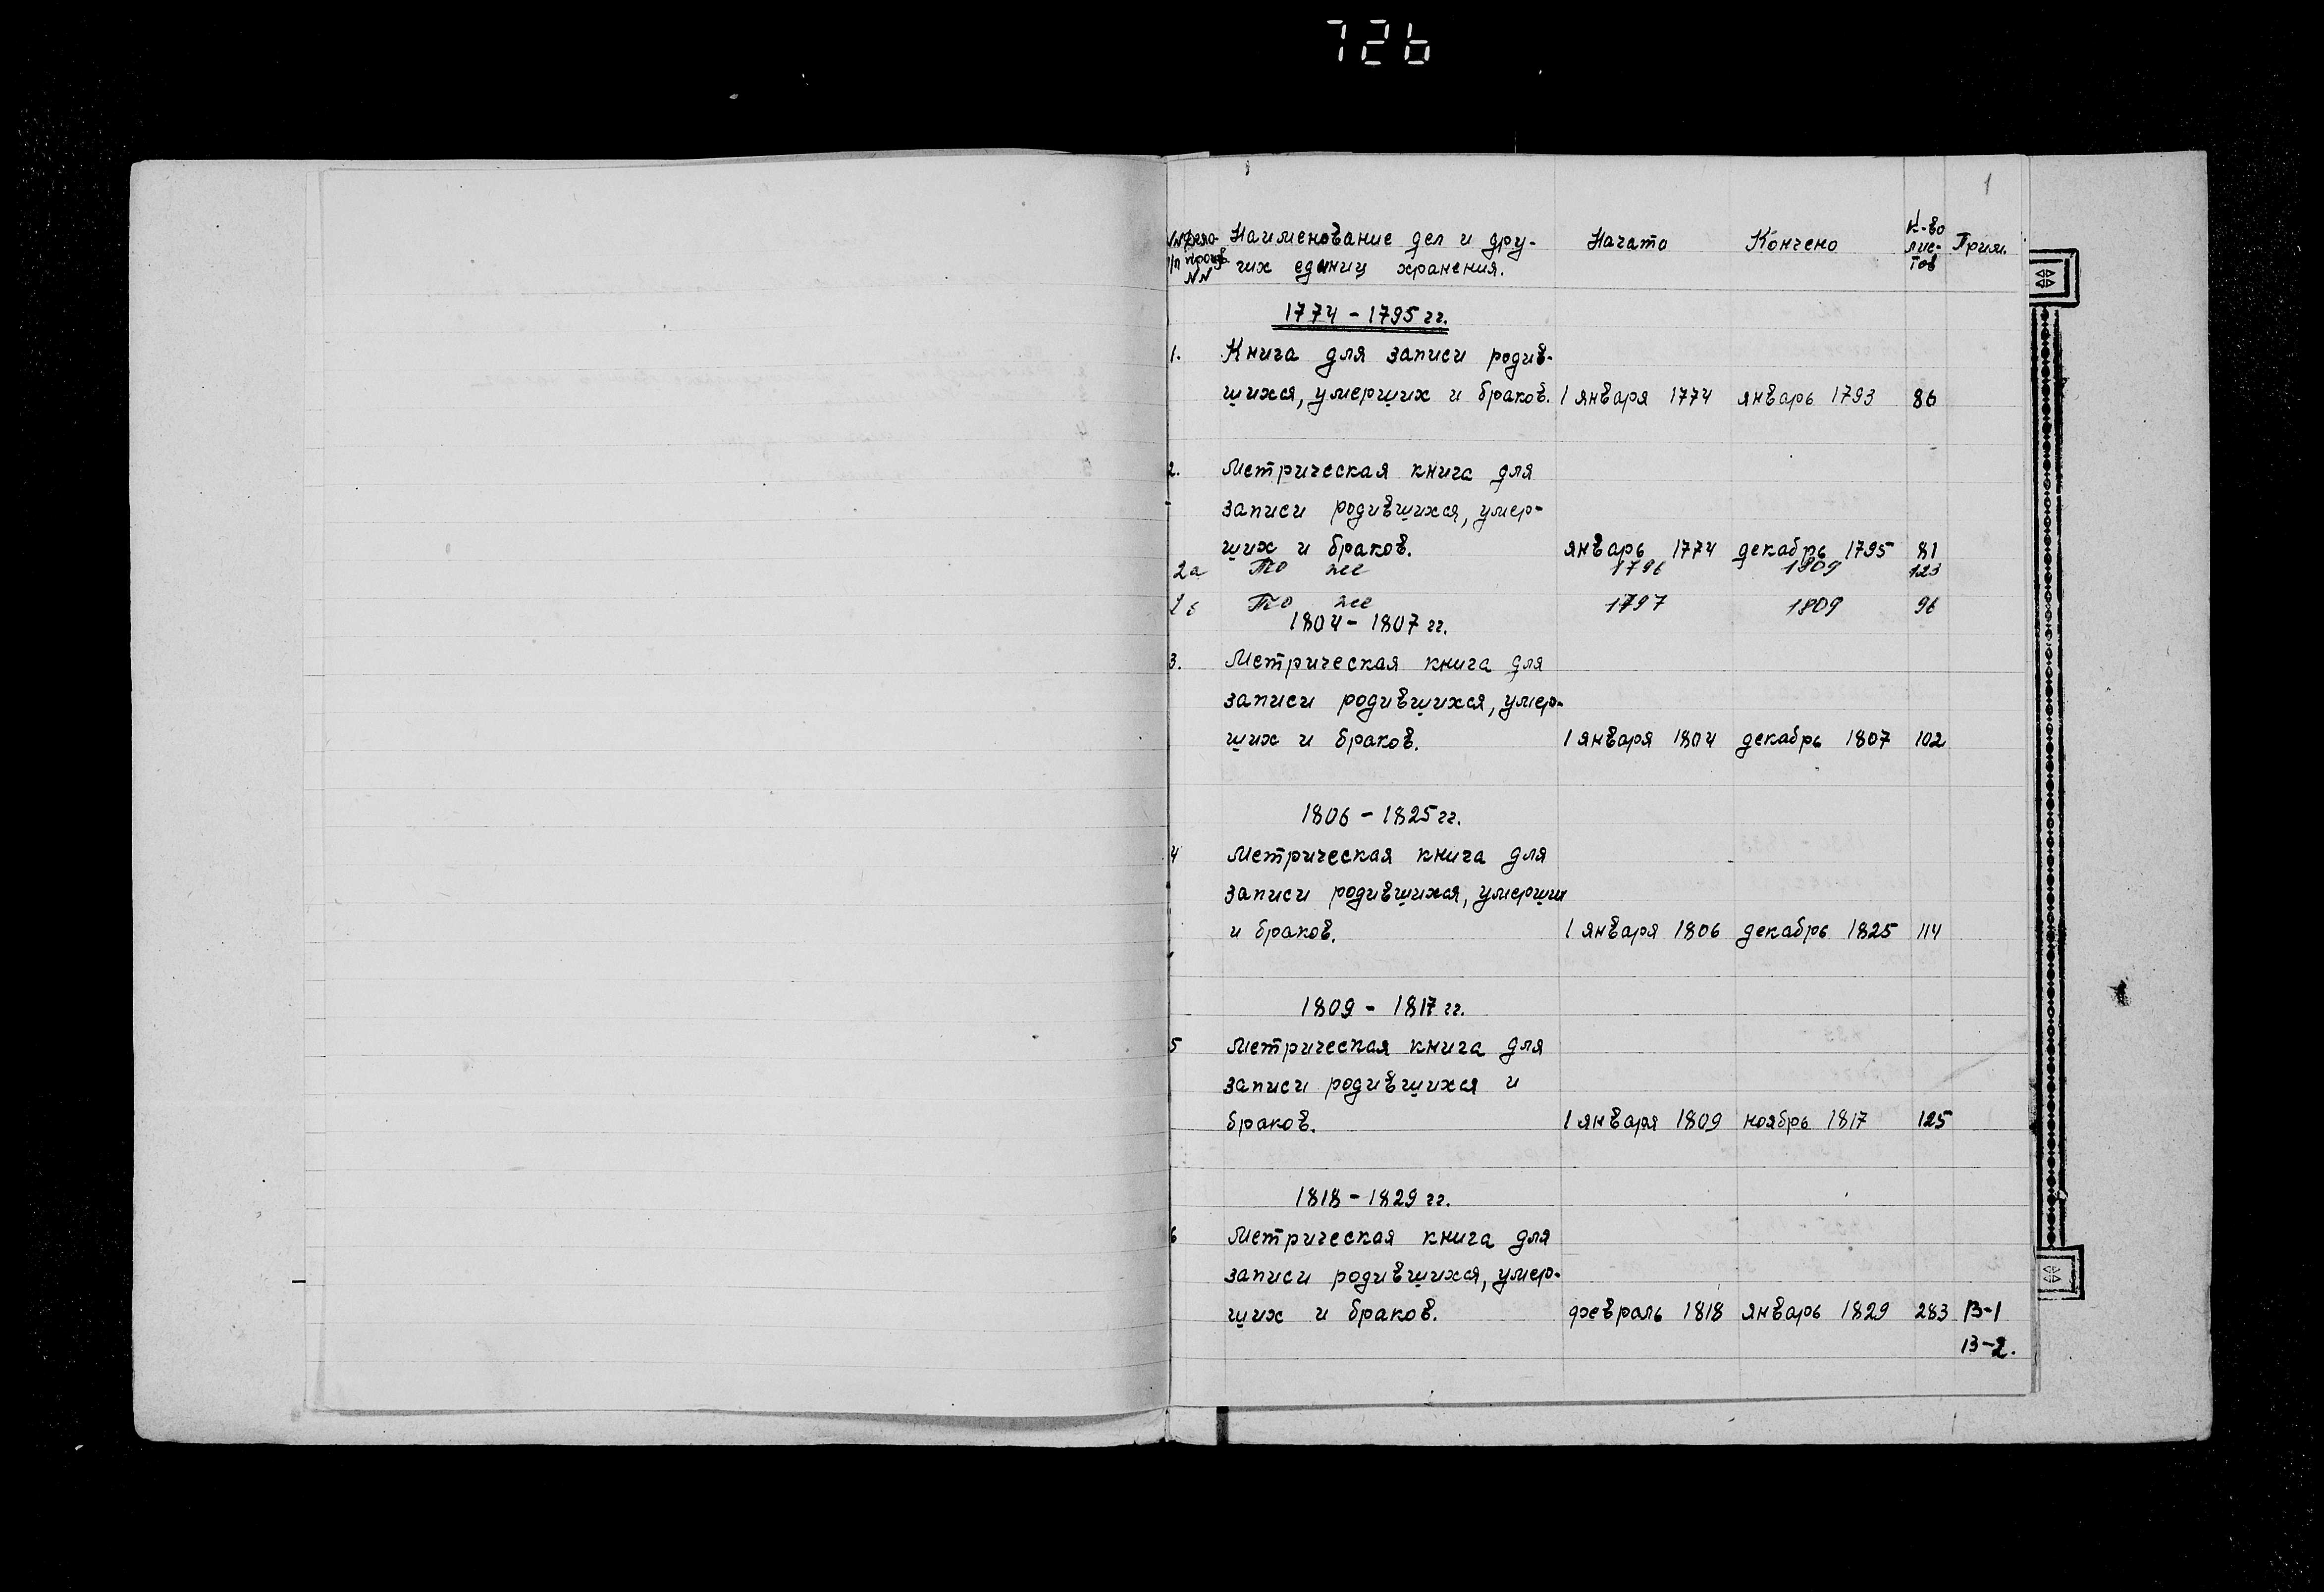 726
1
NN Дело- Наименование дел и дру- Начато Кончено К-во лис- Прим.
п/п произв. NN гих единиц хранения. тов
1774 - 1795 гг.
1. Книга для записи родив-
шихся, умерших и браков. 1 января 1774 январь 1793 86
2. Метрическая книга для
записи родившихся, умер-
ших и браков. январь 1774 декабрь 1795 81
2а То же 1796 1809 123
То же 1797 1809 96
1804 - 1807 гг.
3. Метрическая книга для
записи родившихся, умер-
ших и браков. 1 января 1804 декабрь 1807 102
1806 - 1825 гг.
4 Метрическая книга для
записи родившихся, умерших
и браков. 1 января 1806 декабрь 1825 114
1809 - 1817 гг.
5 Метрическая книга для
записи родившихся и
браков. 1 января 1809 ноябрь 1817 125
1818 - 1829 гг.
6 Метрическая книга для
записи родившихся, умер-
ших и браков. февраль 1818 январь 1829 283 В-1
В-2.